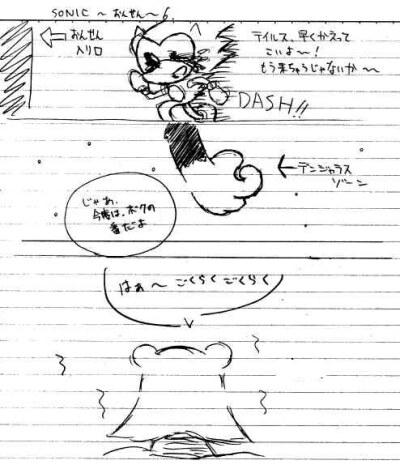 SONIC ～おんせん～ 6
おんせん
入り口
テイルス、早くかえって
こいよ～！
もうまちゅうじゃないか～
DASH!!
デンジャラス
ゾーン
じゃあ、
今度は、ボクの
番だよ
はぁ～ ごくらくごくらく